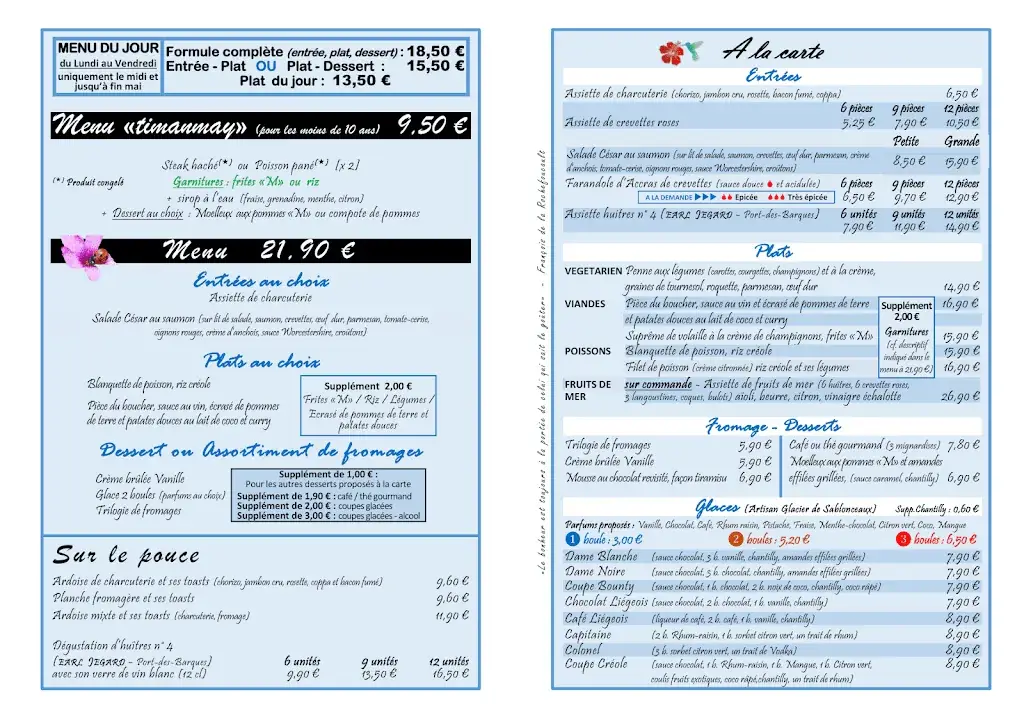 MENU DU JOUR
du Lundi au Vendredi
uniquement le midi et
jusqu'à fin mai
Formule complète (entrée, plat, dessert) : 18,50 €
Entrée - Plat OU Plat - Dessert : 15,50 €
Plat du jour : 13,50 €
Menu «timanmay» (pour les moins de 10 ans) 9,50 €
Steak haché(*) ou Poisson pané(*) [x 2]
(*) Produit congelé
Garnitures : frites «M» ou riz
+ sirop à l'eau (fraise, grenadine, menthe, citron)
+ Dessert au choix : Moelleux aux pommes «M» ou compote de pommes
Menu 21,90 €
Entrées au choix
Assiette de charcuterie
Salade César au saumon (sur lit de salade, saumon, crevettes, œuf dur, parmesan, tomate-cerise,
oignons rouges, crème d'anchois, sauce Worcestershire, croûtons)
Plats au choix
Blanquette de poisson, riz créole
Pièce du boucher, sauce au vin, écrasé de pommes
de terre et patates douces au lait de coco et curry
Supplément 2,00 €
Frites «M» / Riz / Légumes /
Ecrasé de pommes de terre et
patates douces
Dessert ou Assortiment de fromages
Crème brûlée Vanille
Glace 2 boules (parfums au choix)
Trilogie de fromages
Supplément de 1,00 € :
Pour les autres desserts proposés à la carte
Supplément de 1,90 € : café / thé gourmand
Supplément de 2,00 € : coupes glacées
Supplément de 3,00 € : coupes glacées - alcool
Sur le pouce
Ardoise de charcuterie et ses toasts (chorizo, jambon cru, rosette, coppa et bacon fumé) 9,60 €
Planche fromagère et ses toasts 9,60 €
Ardoise mixte et ses toasts (charcuterie, fromage) 11,90 €
Dégustation d'huîtres n° 4
(EARL JEGARD - Port-des-Barques) 6 unités 9 unités 12 unités
avec son verre de vin blanc (12 cl) 9,90 € 13,50 € 16,50 €
«Le bonheur est toujours à la portée de celui qui sait le goûter» - François de la Rochefoucault
A la carte
Entrées
Assiette de charcuterie (chorizo, jambon cru, rosette, bacon fumé, coppa) 6,50 €
6 pièces 9 pièces 12 pièces
Assiette de crevettes roses 5,25 € 7,90 € 10,50 €
Petite Grande
Salade César au saumon (sur lit de salade, saumon, crevettes, œuf dur, parmesan, crème
d'anchois, tomate-cerise, oignons rouges, sauce Worcestershire, croûtons) 8,50 € 15,90 €
Farandole d'Accras de crevettes (sauce douce et acidulée) 6 pièces 9 pièces 12 pièces
A LA DEMANDE Epicée Très épicée 6,50 € 9,70 € 12,90 €
Assiette huitres n° 4 (EARL JEGARD - Port-des-Barques) 6 unités 9 unités 12 unités
7,90 € 11,90 € 14,90 €
Plats
VEGETARIEN Penne aux légumes (carottes, courgettes, champignons) et à la crème,
graines de tournesol, roquette, parmesan, œuf dur 14,90 €
VIANDES Pièce du boucher, sauce au vin et écrasé de pommes de terre 16,90 €
et patates douces au lait de coco et curry
Suprême de volaille à la crème de champignons, frites «M» 15,90 €
POISSONS Blanquette de poisson, riz créole 15,90 €
Filet de poisson (crème citronnée) riz créole et ses légumes 16,90 €
Supplément
2,00 €
Garnitures
(cf. descriptif
indiqué dans le
menu à 21,90 €)
FRUITS DE MER sur commande - Assiette de fruits de mer (6 huîtres, 6 crevettes roses,
3 langoustines, coques, bulots) aïoli, beurre, citron, vinaigre échalotte 26,90 €
Fromage - Desserts
Trilogie de fromages 5,90 €
Crème brûlée Vanille 5,90 €
Mousse au chocolat revisité, façon tiramisu 6,90 €
Café ou thé gourmand (3 mignardises) 7,80 €
Moelleux aux pommes «M» et amandes
effilées grillées, (sauce caramel, chantilly) 6,90 €
Glaces (Artisan Glacier de Sablonceaux) Supp.Chantilly : 0,60 €
Parfums proposés : Vanille, Chocolat, Café, Rhum raisin, Pistache, Fraise, Menthe-chocolat, Citron vert, Coco, Mangue
1 boule : 3,00 € 2 boules : 5,20 € 3 boules : 6,50 €
Dame Blanche (sauce chocolat, 3 b. vanille, chantilly, amandes effilées grillées) 7,90 €
Dame Noire (sauce chocolat, 3 b. chocolat, chantilly, amandes effilées grillées) 7,90 €
Coupe Bounty (sauce chocolat, 1 b. chocolat, 2 b. noix de coco, chantilly, coco râpé) 7,90 €
Chocolat Liégeois (sauce chocolat, 2 b. chocolat, 1 b. vanille, chantilly) 7,90 €
Café Liégeois (liqueur de café, 2 b. café, 1 b. vanille, chantilly) 8,90 €
Capitaine (2 b. Rhum-raisin, 1 b. sorbet citron vert, un trait de rhum) 8,90 €
Colonel (3 b. sorbet citron vert, un trait de Vodka) 8,90 €
Coupe Créole (sauce chocolat, 1 b. Rhum-raisin, 1 b. Mangue, 1 b. Citron vert, 8,90 €
coulis fruits exotiques, coco râpé,chantilly, un trait de rhum)